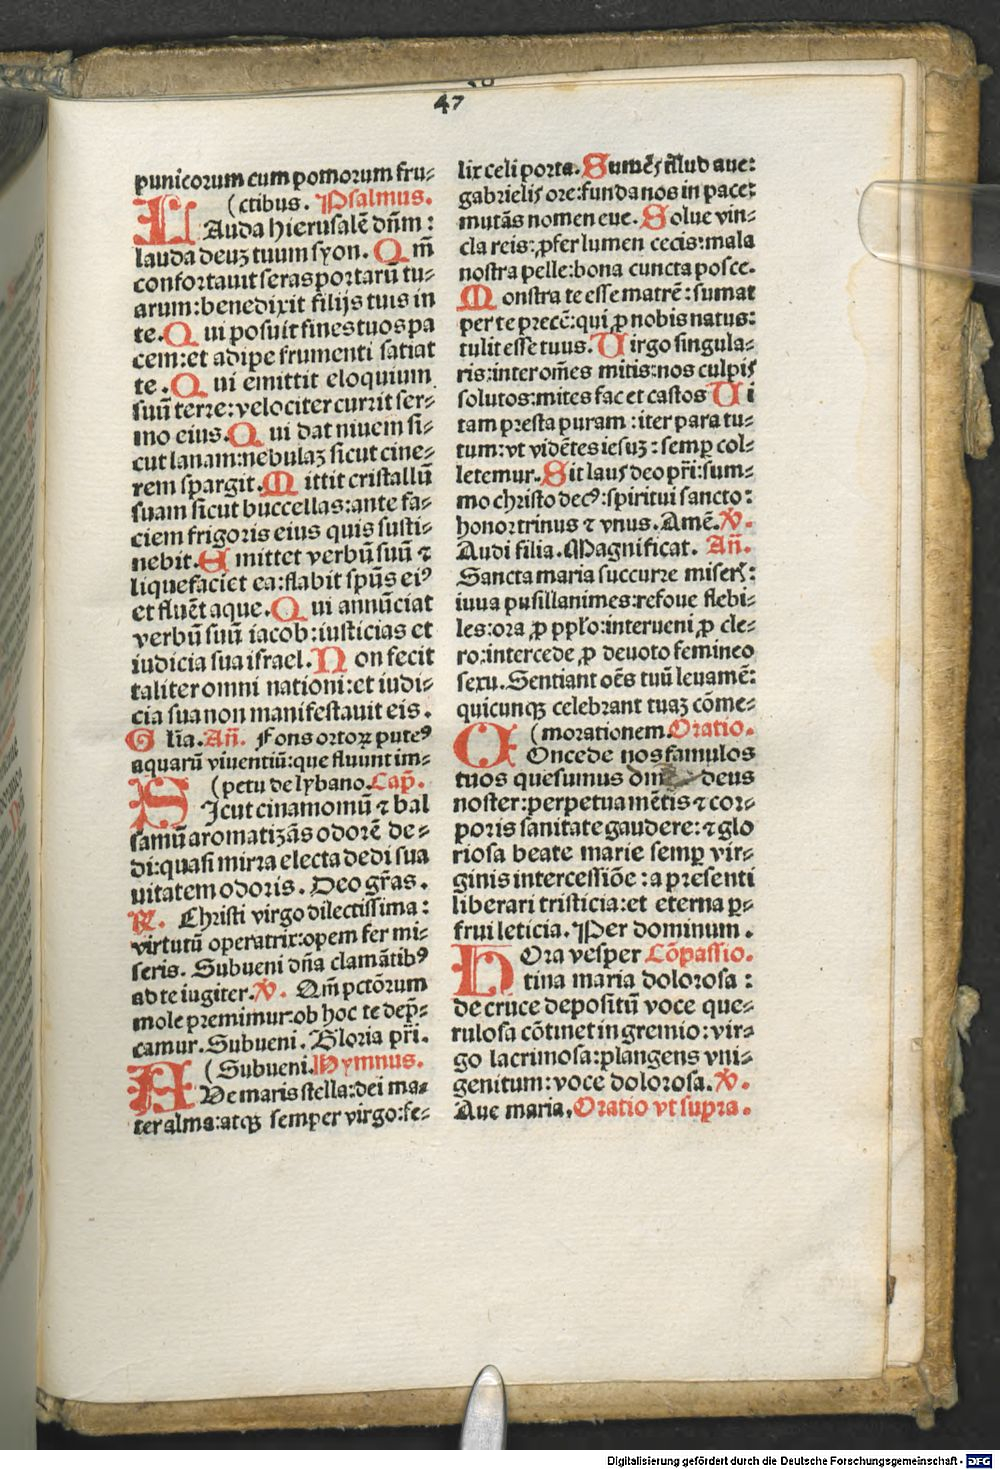 47
punicorum cum pomorum fru⸗
(ctibus. Psalmus.
LAuda hierusalē dn̄m:
lauda deuʒ tuum syon. Qm̄
confortauit seras portarū tu⸗
arum:benedixit filijs tuis in
te. Qui posuit fines tuos pa
cem:et adipe frumenti satiat
te. Qui emittit eloquium
suū terre:velociter currit ser⸗
mo eius. Qui dat niuem si⸗
cut lanam:nebulaʒ sicut cine⸗
rem spargit. Mittit cristallū
suam sicut buccellas:ante fa⸗
ciem frigoris eius quis susti⸗
nebit. Emittet verbū suū ⁊
liquefaciet ea:flabit spūs eiꝰ
et fluēt aque. Qui annūciat
verbū suū iacob:iusticias et
iudicia sua israel. Non fecit
taliter omni nationi:et iudi⸗
cia sua non manifestauit eis.
Gl̄ia. An̄. Fons ortoꝝ puteꝰ
aquarū viuentiū:que fluunt im⸗
(petu de lybano. Cap̄.
SIcut cinamomū ⁊ bal
samū aromatizās odorē de⸗
di:quasi mirra electa dedi sua
uitatem odoris. Deo gr̄as.
℟. Christi virgo dilectissima:
virtutū operatrix:opem fer mi⸗
seris. Subueni dn̄a clamātibꝰ
ad te iugiter. ℣. Qm̄ pctōrum
mole premimur:ob hoc te dep̄⸗
camur. Subueni. Gloria pr̄i.
(Subueni. Hymnus.
AVe maris stella:dei ma⸗
ter alma:atqꝫ semper virgo:fe⸗
lix celi porta. Sumēs illud aue:
gabrielis ore:funda nos in pace:
mutās nomen eue. Solue vin⸗
cla reis:ꝓfer lumen cecis:mala
nostra pelle:bona cuncta posce.
Monstra te esse matrē:sumat
per te precē:qui ꝓ nobis natus:
tulit esse tuus. Uirgo singula⸗
ris:inter om̄es mitis:nos culpis
solutos:mites fac et castos Ui
tam presta puram:iter para tu⸗
tum:vt vidētes iesuʒ:semꝑ col⸗
letemur. Sit laus deo pr̄i:sum⸗
mo christo decꝰ:spiritui sancto:
honor trinus ⁊ vnus. Amē. ℣.
Audi filia. Magnificat. An̄.
Sancta maria succurre miseris:
iuua pusillanimes:refoue flebi⸗
les:ora ꝓ pplo:interueni ꝓ cle⸗
ro:intercede ꝓ deuoto femineo
sexu. Sentiant oēs tuū leuamē:
quicunqꝫ celebrant tuaʒ cōme⸗
(morationem. Oratio.
COncede nos famulos
tuos quesumus dn̄e deus
noster:perpetua mētis ⁊ cor⸗
poris sanitate gaudere:⁊ glo
riosa beate marie semꝑ vir⸗
ginis intercessiōe:a presenti
liberari tristicia:et eterna ꝑ⸗
frui leticia. Per dominum.
HOra vesper Cōpassio.
tina maria dolorosa:
de cruce depositū voce que⸗
rulosa cōtinet in gremio:vir⸗
go lacrimosa:plangens vni⸗
genitum:voce dolorosa. ℣.
Aue maria, Oratio vt supra.
Digitalisierung gefördert durch die Deutsche Forschungsgemeinschaft - DFG